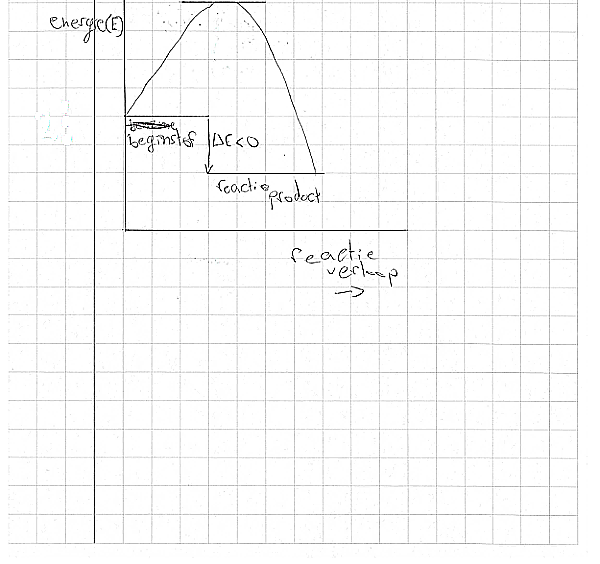 energie(E)
beginstof
ΔE<0
reactieproduct
reactie
verloop
→